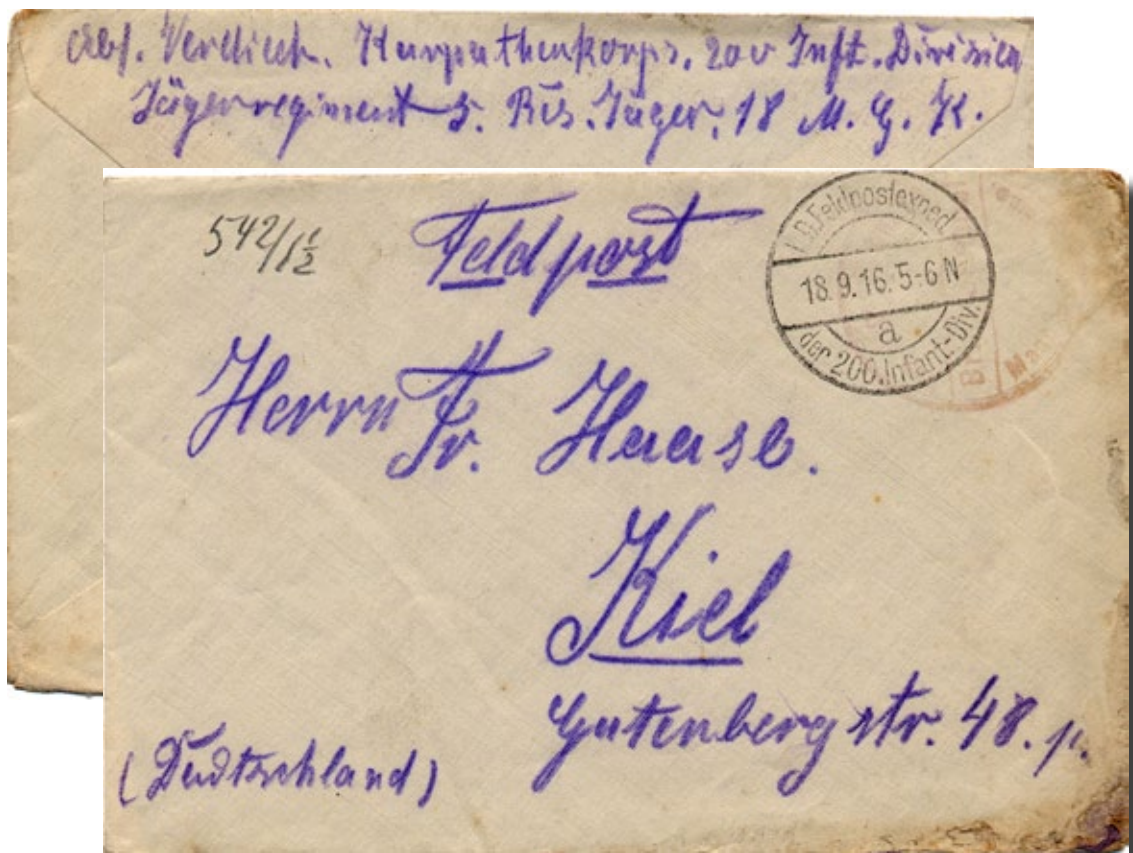 Abs. Verdieck. Karpathenkorps. 200 Inft. Division
Jägerregiment 5. Res. Jäger. 18 M. G. K.
542/1½
Feldpost
K.D.Feldpostexped.
18.9.16.5-6 N
a
der 200.Infant-Div.
Herrn Fr. Haase.
Kiel
Gutenbergstr. 48. p.
(Deutschland)